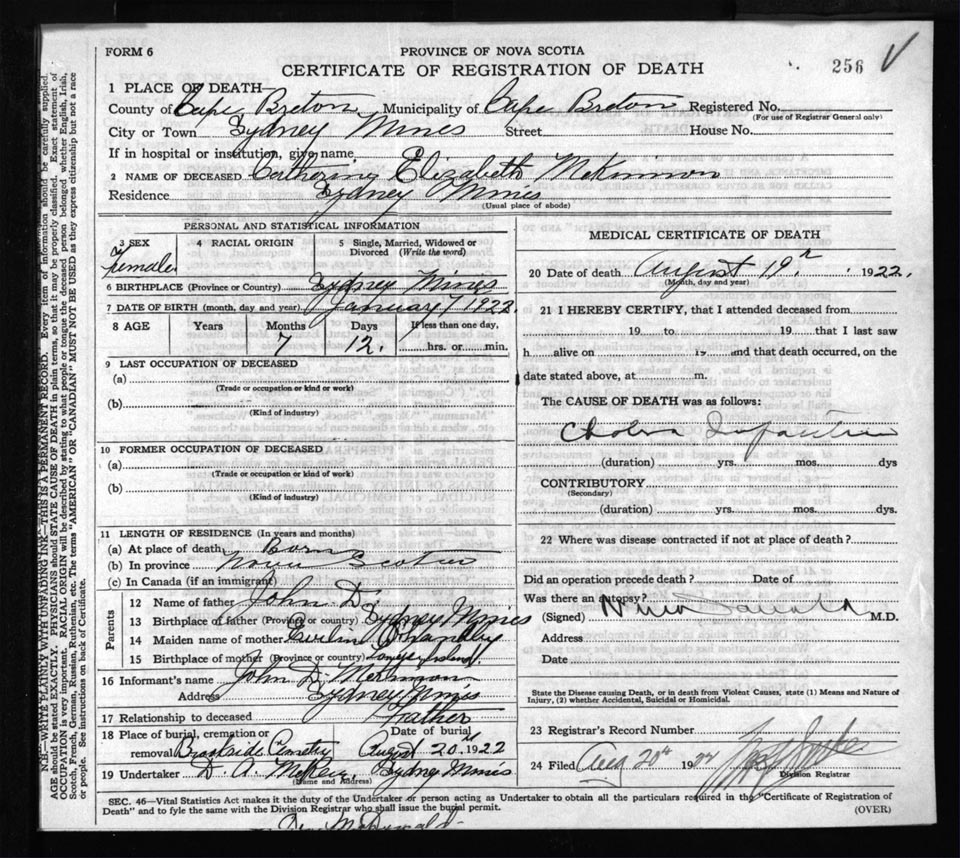 FORM 6
PROVINCE OF NOVA SCOTIA
CERTIFICATE OF REGISTRATION OF DEATH
256
1 PLACE OF DEATH
County of Cape Breton Municipality of Cape Breton Registered No.
(For use of Registrar General only)
City or Town Sydney Mines Street House No.
If in hospital or institution, give name
2 NAME OF DECEASED Catherine Elizabeth McKinnon
Residence Sydney Mines
(Usual place of abode)
PERSONAL AND STATISTICAL INFORMATION
3 SEX 4 RACIAL ORIGIN 5 Single, Married, Widowed or Divorced (Write the word)
Female
6 BIRTHPLACE (Province or Country) Sydney Mines
7 DATE OF BIRTH (month, day and year) January 7 1922
8 AGE Years Months Days If less than one day,
7 12. hrs. or min.
9 LAST OCCUPATION OF DECEASED
(a)
(Trade or occupation or kind or work)
(b)
(Kind of industry)
10 FORMER OCCUPATION OF DECEASED
(a)
(Trade or occupation or kind of work)
(b)
(Kind of industry)
11 LENGTH OF RESIDENCE (In years and months)
(a) At place of death Born
(b) In province Nova Scotia
(c) In Canada (if an immigrant)
Parents
12 Name of father John D.
13 Birthplace of father (Province or country) Sydney Mines
14 Maiden name of mother
15 Birthplace of mother (Province or country)
16 Informant's name John D. McKinnon
Address Sydney Mines
17 Relationship to deceased Father
18 Place of burial, cremation or removal Brookside Cemetry
Date of burial August 20 1922
19 Undertaker D. A. Sydney Mines
(Name and Address)
MEDICAL CERTIFICATE OF DEATH
20 Date of death August 19 1922.
(Month, day and year)
21 I HEREBY CERTIFY, that I attended deceased from
19 to 19 that I last saw
h alive on 19 and that death occurred, on the
date stated above, at m.
The CAUSE OF DEATH was as follows:
Cholera Infantum
(duration) yrs. mos. dys
CONTRIBUTORY
(Secondary)
(duration) yrs. mos. dys.
22 Where was disease contracted if not at place of death?
Did an operation precede death? Date of
Was there an autopsy?
(Signed) M.D.
Address
Date
State the Disease causing Death, or in death from Violent Causes, state (1) Means and Nature of
Injury, (2) whether Accidental, Suicidal or Homicidal.
23 Registrar's Record Number
24 Filed Aug 20th 19
Division Registrar
SEC. 46—Vital Statistics Act makes it the duty of the Undertaker or person acting as Undertaker to obtain all the particulars required in the "Certificate of Registration of
Death" and to fyle the same with the Division Registrar who shall issue the burial permit.
(OVER)
McDonald
N.B.—WRITE PLAINLY WITH UNFADING INK—THIS IS A PERMANENT RECORD. Every item of information should be carefully supplied.
AGE should be stated EXACTLY. PHYSICIANS should STATE CAUSE OF DEATH in plain terms, so that it may be properly classified. Exact statement of
OCCUPATION is very important. RACIAL ORIGIN will be described by stating to what people or tongue the deceased person belonged whether English, Irish,
Scotch, French, German, Russian, Ruthenian, etc. The terms "AMERICAN" OR "CANADIAN" MUST NOT BE USED as they express citizenship but not a race
or people. See instructions on back of Certificate.